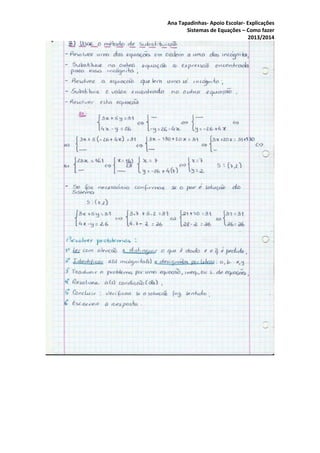 Ana Tapadinhas- Apoio Escolar- Explicações
Sistemas de Equações – Como fazer
2013/2014
Usar o método de substituição
- Resolver uma das equações em ordem a uma das incógnitas,
- Substituir na outra equação a expressão encontrada
para essa incógnita,
- Resolver a equação que tem uma só incógnita,
- Substituir o valor encontrado na outra equação,
- Resolver esta equação
Ex:
{ 3x + 5y = 31 { — { —
4x - y = 26 ⇔ -y = 26 - 4x ⇔ y = -26 + 4x ⇔
⇔ { 3x + 5(-26 + 4x) = 31 ⇔ { 3x - 130 + 20x = 31 ⇔ { 3x + 20x = 31 + 130 ⇔
— — —
⇔ { 23x = 161 ⇔ { x = 7 { x = 7
— y = -26 + 4(7) ⇔ y = 2 S: (7,2)
- Se for necessário confirmar se o par é solução do
sistema
S: (7,2)
{ 3x + 5y = 31 ⇔ { 3.7 + 5.2 = 31 ⇔ { 21 + 10 = 31 ⇔ { 31 = 31
4x - y = 26 4.7 - 2 = 26 28 - 2 = 26 26 = 26
Resolver problemas:
1º Ler com atenção e distinguir o que é dado e o q é pedido,
2º Identificar a(s) incógnita(s) e designá-las por letras: a, b x, y
3º Traduzir o problema por uma equação, inequ, ou s. de equações,
4º Resolver a(s) condição(ões),
5º Concluir: verificar se a solução faz sentido,
6º Escrever a resposta.